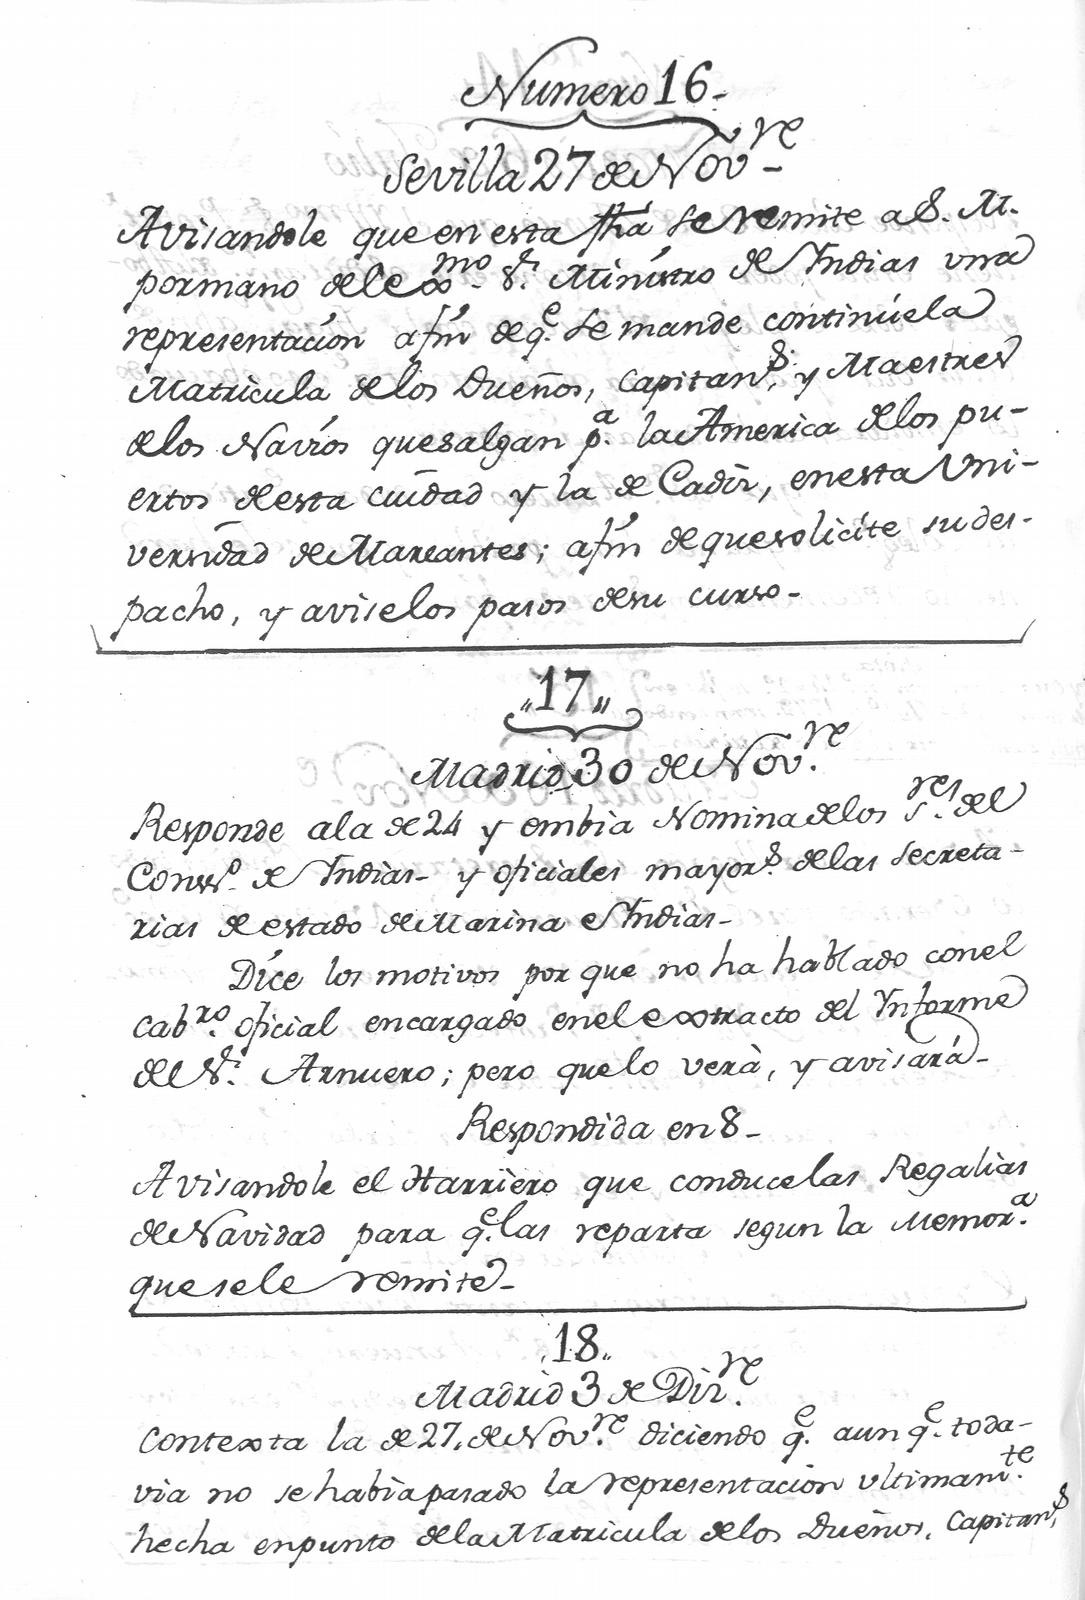 Numero 16-
Sevilla 27 de Nov.re
Avisandole que en esta fha se remite a S. M.
por mano del exmo. Sr. Ministro de Indias una
representación afin de q.e se mande continúe la
Matricula de los Dueños, Capitan.s y Maestres
de los Navios que salgan p.a la America de los pu-
ertos de esta ciudad y la de Cadiz, en esta Uni-
versidad de Mareantes; afin de que solicite su des-
pacho, y avise los pasos de su curso-
„17„
Madrid 30 de Nov.re
Responde a la de 24 y embia Nomina de los S.res del
Cons.o de Indias- y oficiales mayor.s de las secreta-
rias de estado de Marina e Indias-
Dice los motivos por que no ha hablado con el
cab.ro oficial encargado en el extracto del Informe
del Sr. Arnuero; pero que lo verà, y avisará-
Respondida en 8-
Avisandole el Harriero que conduce las Regalias
de Navidad para q.e las reparta segun la Memor.a
que se le remite-
18.
Madrid 3 de Diz.re
Contexta la de 27. de Nov.re diciendo q.e aun q.e toda-
via no se habia pasado la representacion ultimam.te
hecha en punto de la Matricula de los Dueños, Capitan.s